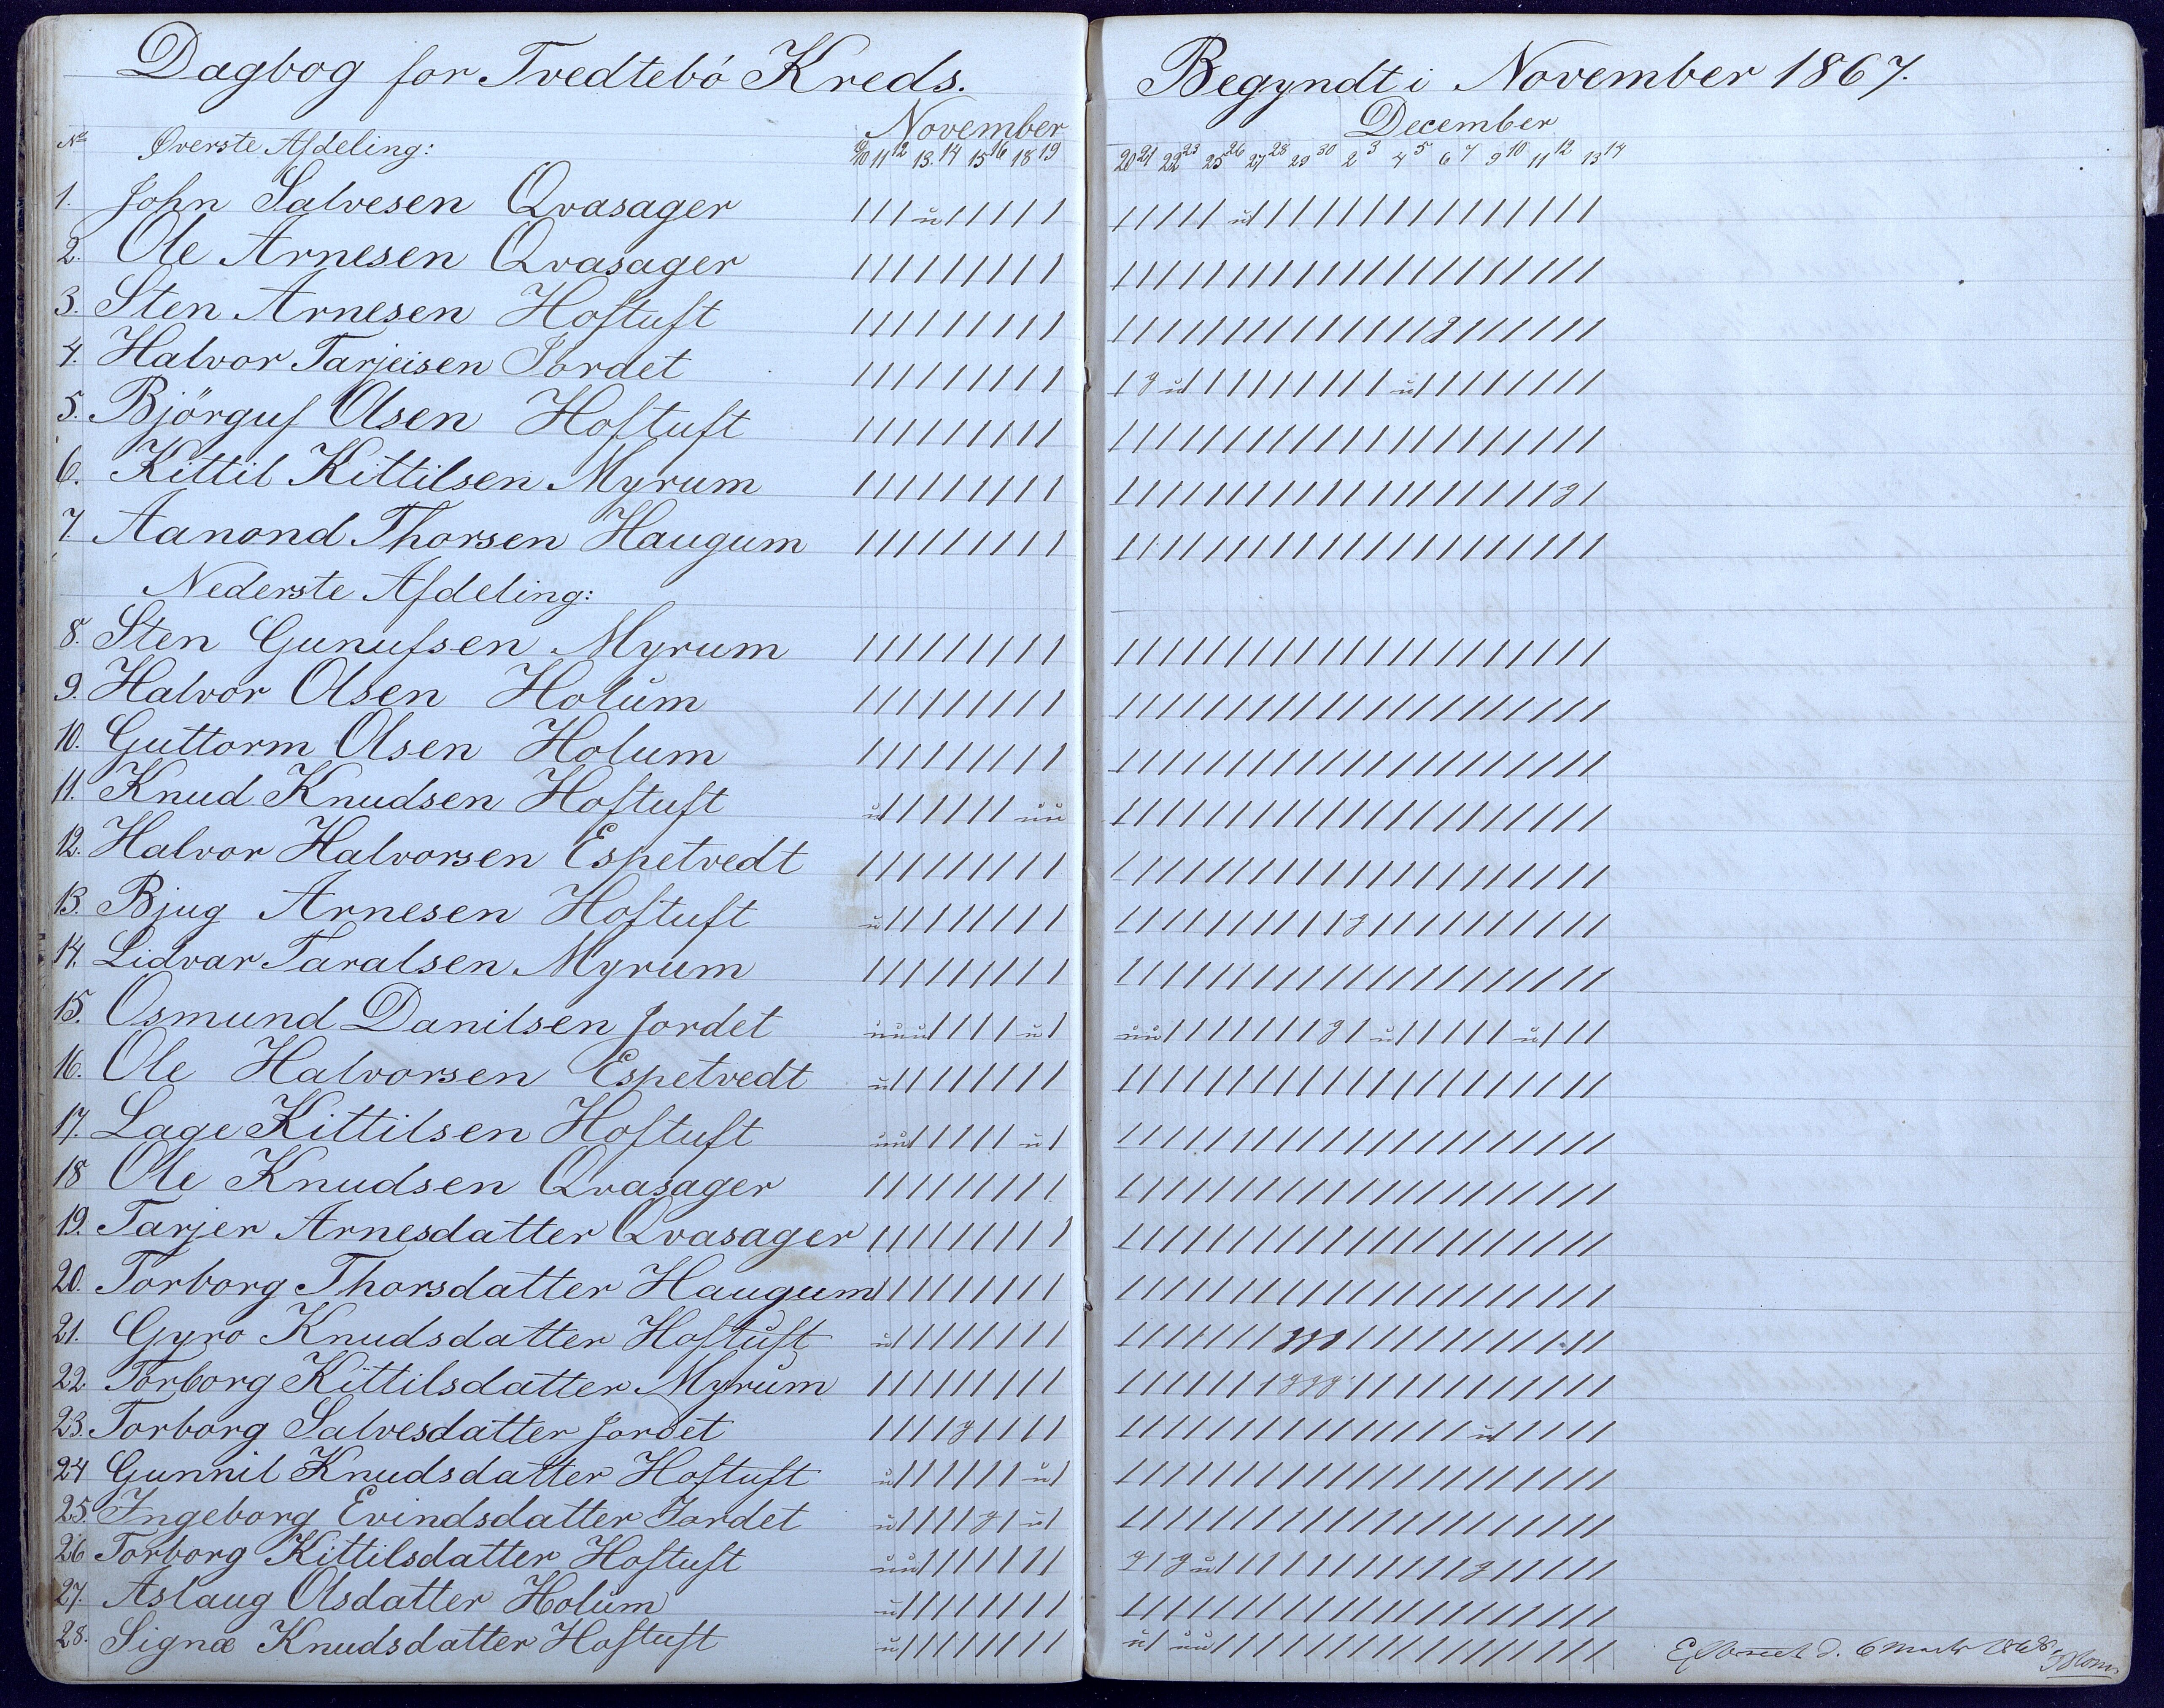 Dagbog for Tvedtebö Kreds.
Begyndt i November 1867.
November
December
No Øverste Afdeling:
9/10 11 12 13 14 15 16 18 19
20 21 22 23 25 26 27 28 29 30 2 3 4 5 6 7 9 10 11 12 13 14
1. John Salvesen Qvasager / / / u / / / / / / / / / / u / / / / / / / / / / / / / / / /
2. Ole Arnesen Qvasager
3. Sten Arnesen Hoftuft
4. Halvor Tarjeisen Jordet
5. Björguf Olsen Hoftuft
6. Kittil Kittilsen Myrum
7. Aanond Thorsen Haugum
Nederste Afdeling:
8. Sten Gunufsen Myrum
9. Halvor Olsen Holum
10. Guttorm Olsen Holum
11. Knud Knudsen Hoftuft
12. Halvor Halvorsen Espetvedt
13. Bjug Arnesen Hoftuft
14. Lidvar Taralsen Myrum
15. Osmund Danilsen Jordet
16. Ole Halvorsen Espetvedt
17. Lage Kittilsen Hoftuft
18 Ole Knudsen Qvasager
19. Tarjer Arnesdatter Qvasager
20. Torborg Thorsdatter Haugum
21. Gyro Knudsdatter Hoftuft
22. Torborg Kittilsdatter Myrum
23. Torborg Salvesdatter Jordet
24 Gunnil Knudsdatter Hoftuft
25. Ingeborg Evindsdatter Jordet
26 Torborg Kittilsdatter Hoftuft
27. Aslaug Olsdatter Holum
28. Signæ Knudsdatter Hoftuft
d. 6 Marts 1868